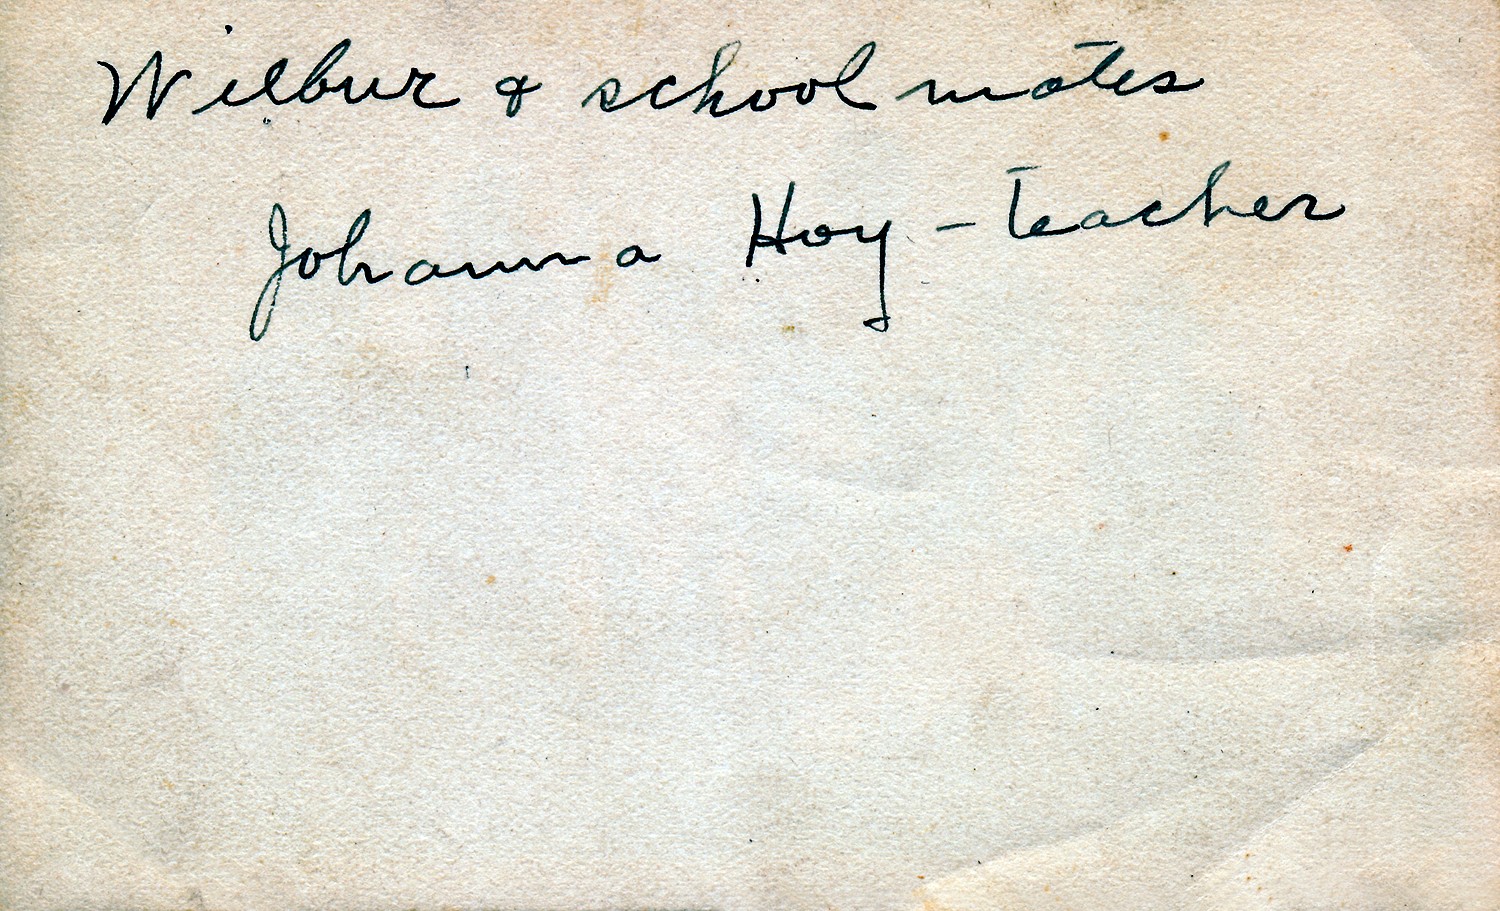 Wilbur & school mates
Johanna Hoy - teacher